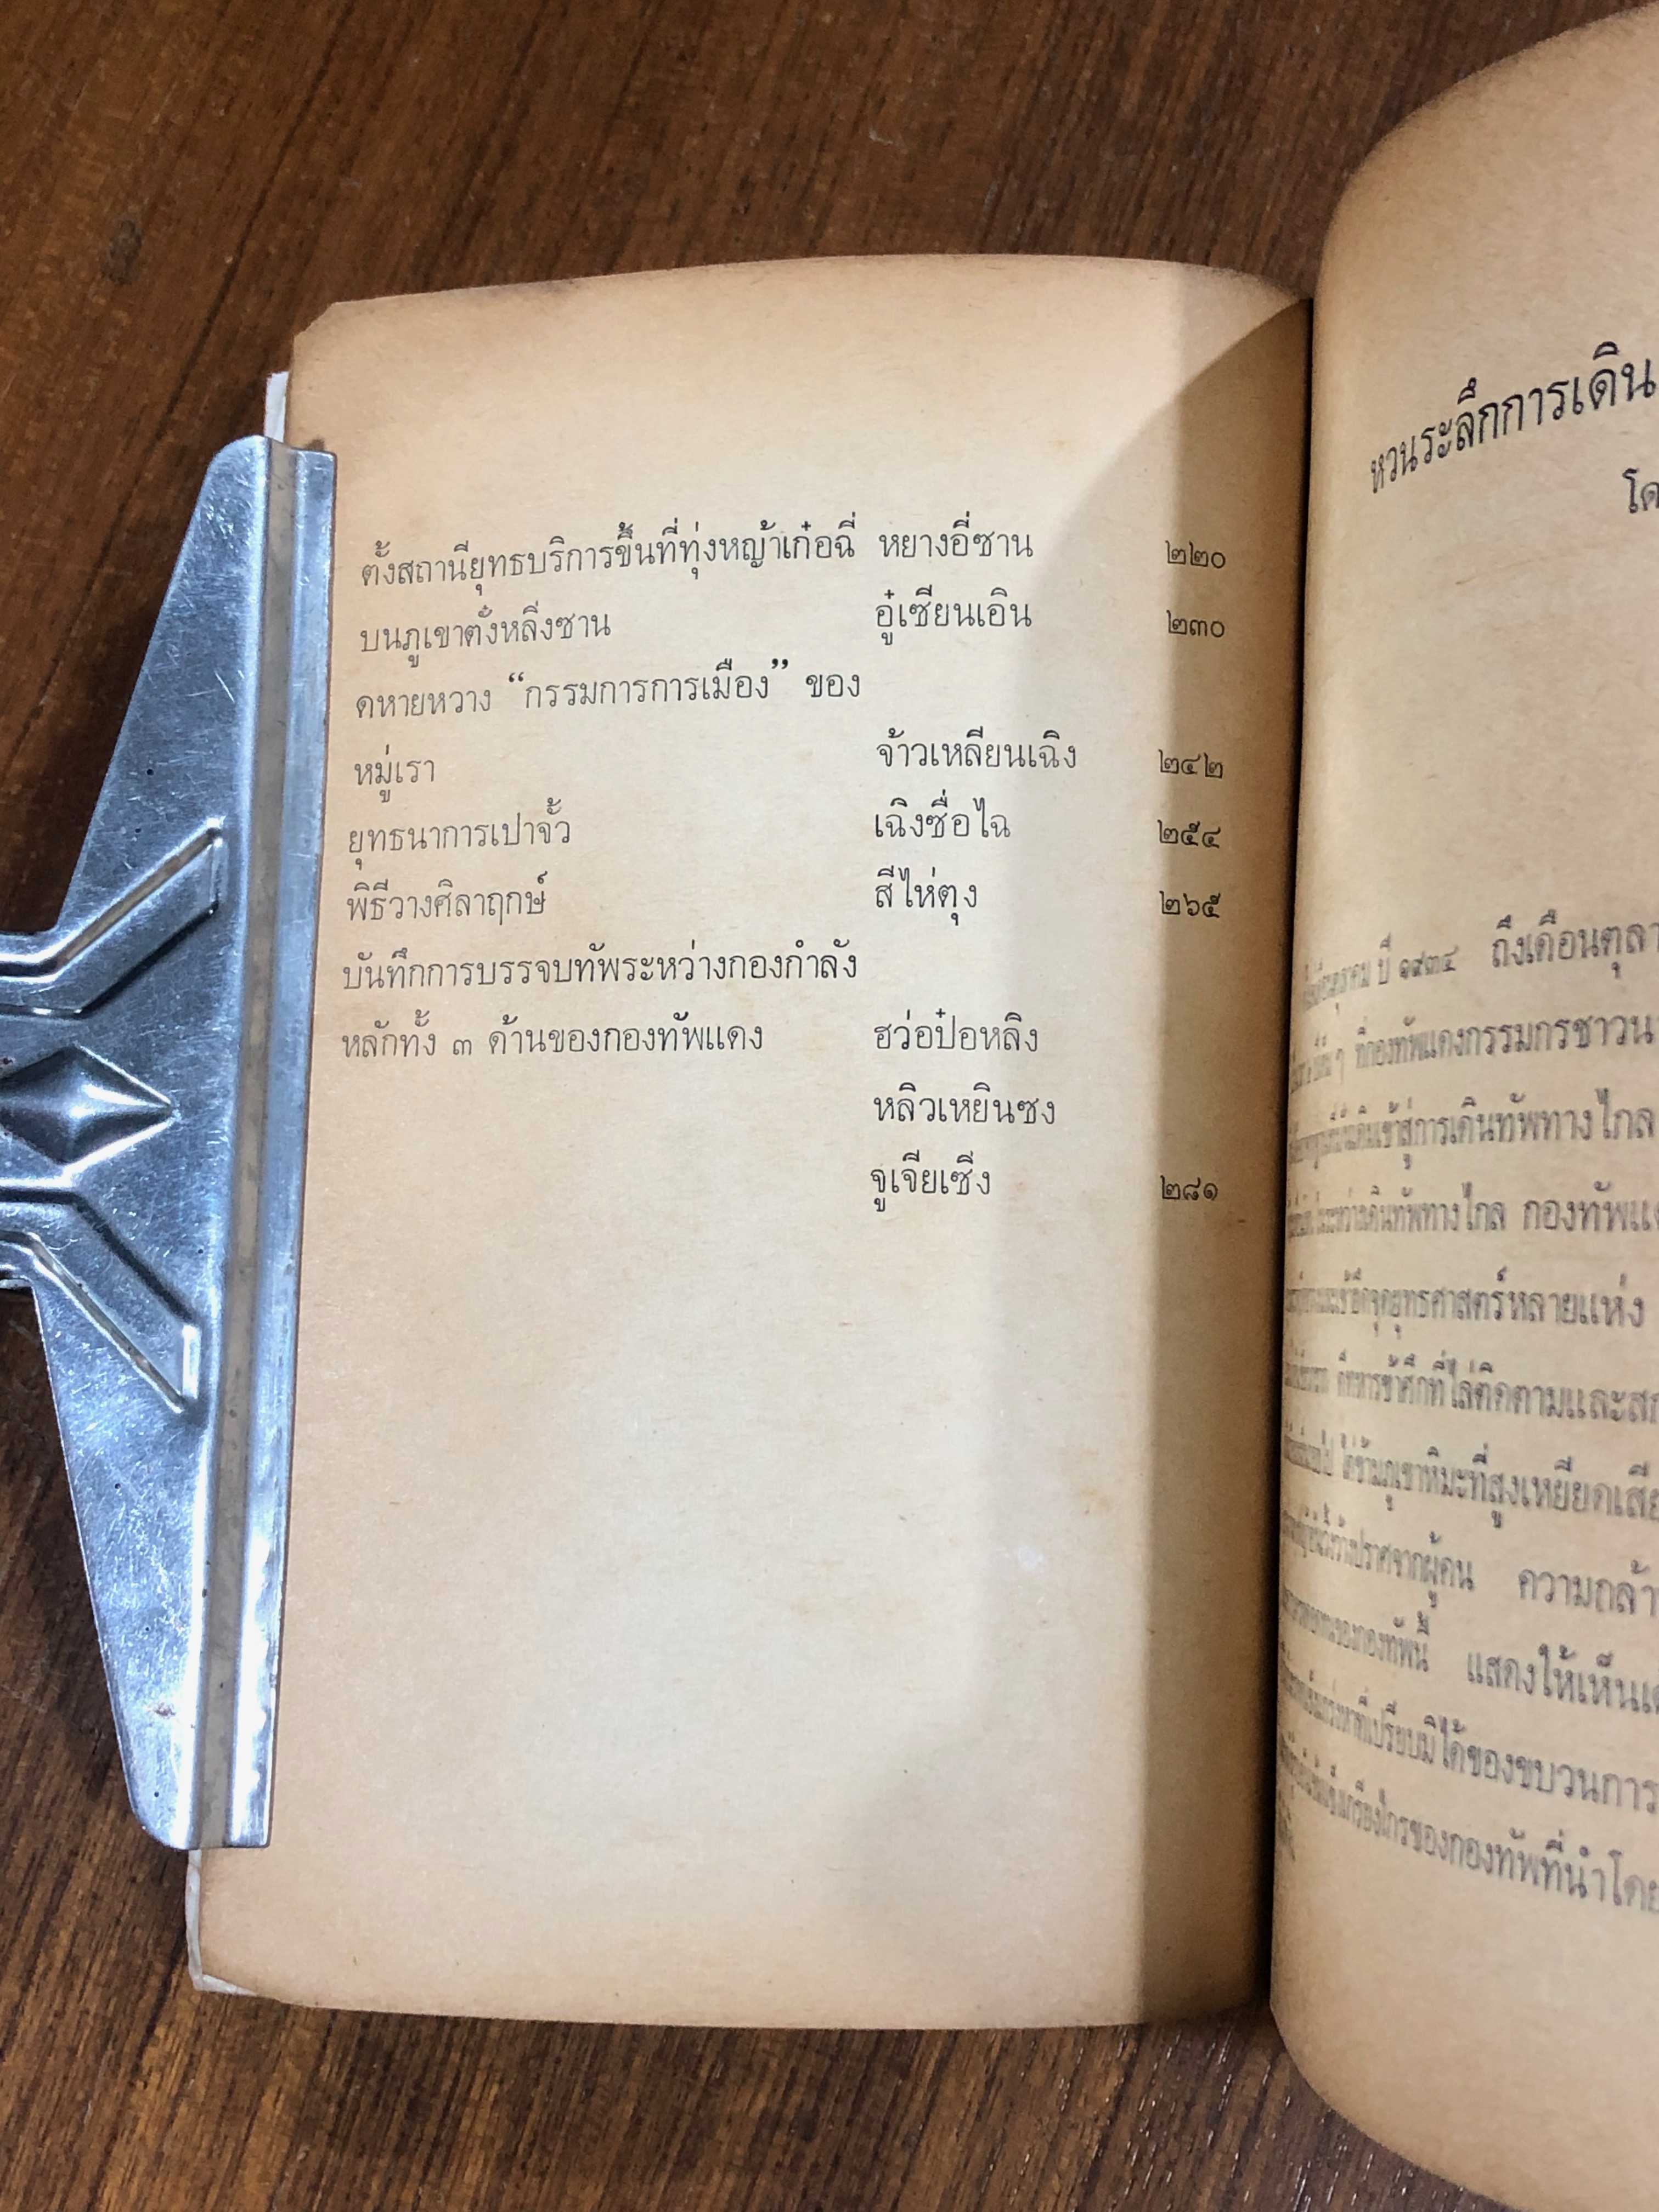 ตั้งสถานียุทธบริการขึ้นที่ทุ่งหญ้าเก๋อฉี่ หยางอี่ซาน ๒๒๐
บนภูเขาตั่งหลิ่งซาน อู๋เซียนเอิน ๒๓๐
ดหายหวาง “กรรมการการเมือง” ของ
หมู่เรา จ้าวเหลียนเฉิง ๒๔๒
ยุทธนาการเปาจั้ว เฉิงซื่อไฉ ๒๕๔
พิธีวางศิลาฤกษ์ สีไห่ตุง ๒๖๕
บันทึกการบรรจบทัพระหว่างกองกำลัง
หลักทั้ง ๓ ด้านของกองทัพแดง ฮว่อป๋อหลิง
หลิวเหยินซง
จูเจียเซิ่ง ๒๘๑
หวนระลึกการเดิน
โด
ปี ๑๙๓๔ ถึงเดือนตุลา
ที่กองทัพแดงกรรมกรชาวนา
เข้าสู่การเดินทัพทางไกล
ในระหว่างเดินทัพทางไกล กองทัพแด
ยึดจุดยุทธศาสตร์หลายแห่ง
ตีทหารข้าศึกที่ไล่ติดตามและสก
ได้ข้ามภูเขาหิมะที่สูงเหยียดเสีย
ปราศจากผู้คน ความกล้า
ของกองทัพนี้ แสดงให้เห็น
ที่เปรียบมิได้ของขบวนการ
เกรียงไกรของกองทัพที่นำโดย